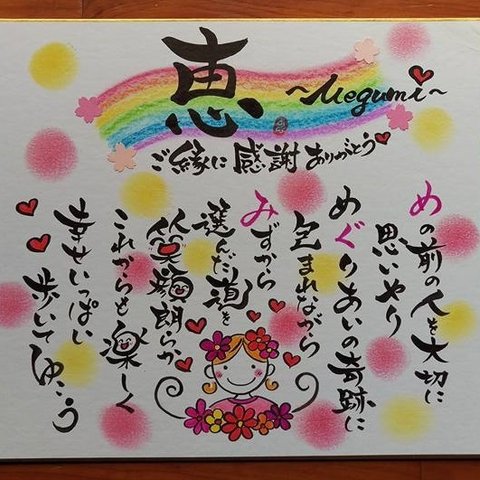 恵
～Megumi～
ご縁に感謝ありがとう
めの前の人を大切に
思いやり
めぐりあいの奇跡に
包まれながら
みずから
選んだ道を
笑顔朗らか
これからも楽しく
幸せいっぱい
歩いてゆこう